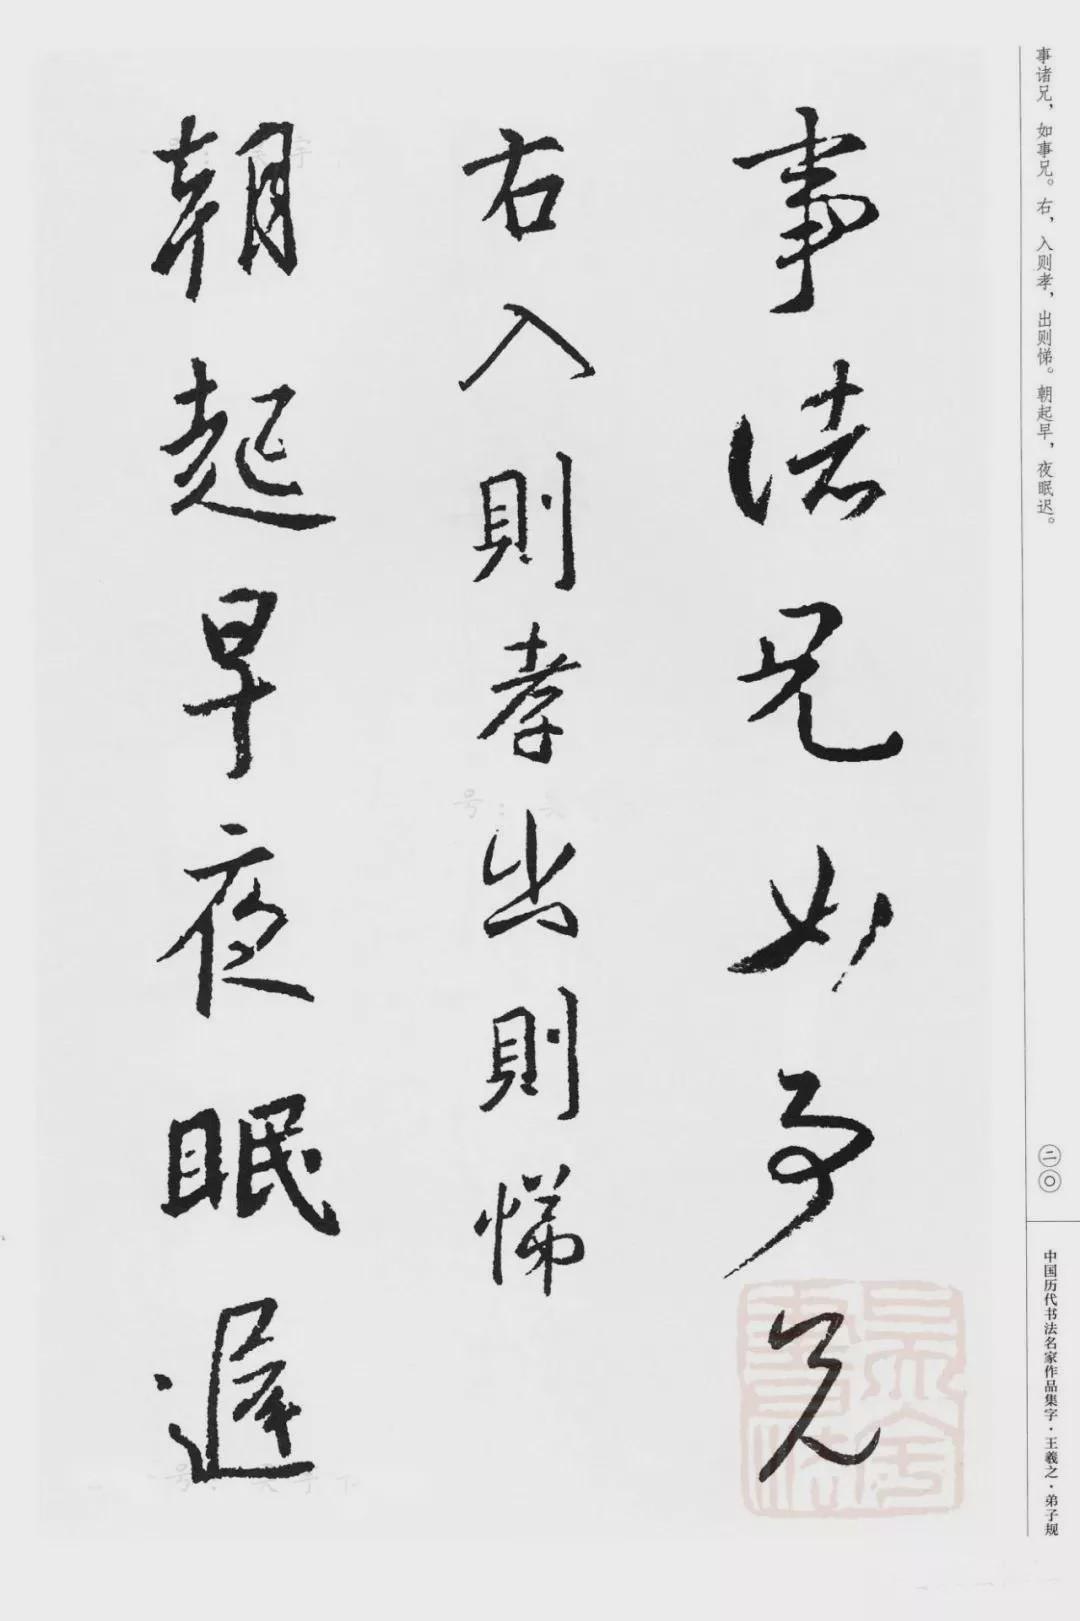 事諸兄如事兄
右入則孝出則悌
朝起早夜眠遲
事诸兄，如事兄。右，入则孝，出则悌。朝起早，夜眠迟。
二〇
中国历代书法名家作品集字·王羲之·弟子规